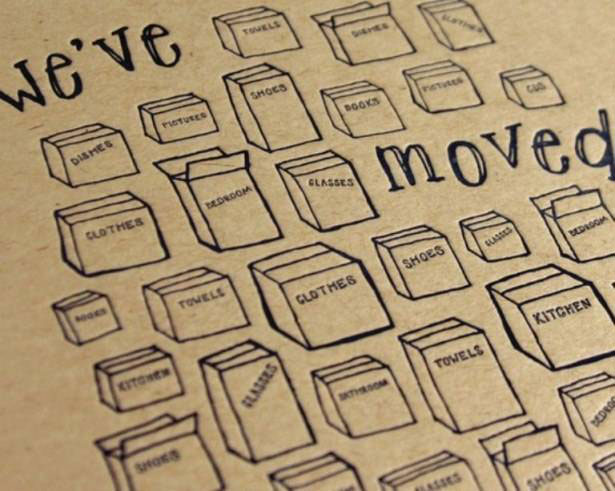 we've
TOWELS
DISHES
CLOTHES
PICTURES
SHOES
BOOKS
PICTURES
DISHES
BEDROOM
GLASSES
moved
CLOTHES
SHOES
GLASSES
BEDROOM
BOOKS
TOWELS
CLOTHES
KITCHEN
KITCHEN
GLASSES
BATHROOM
TOWELS
SHOES
GLASSES
SHOES